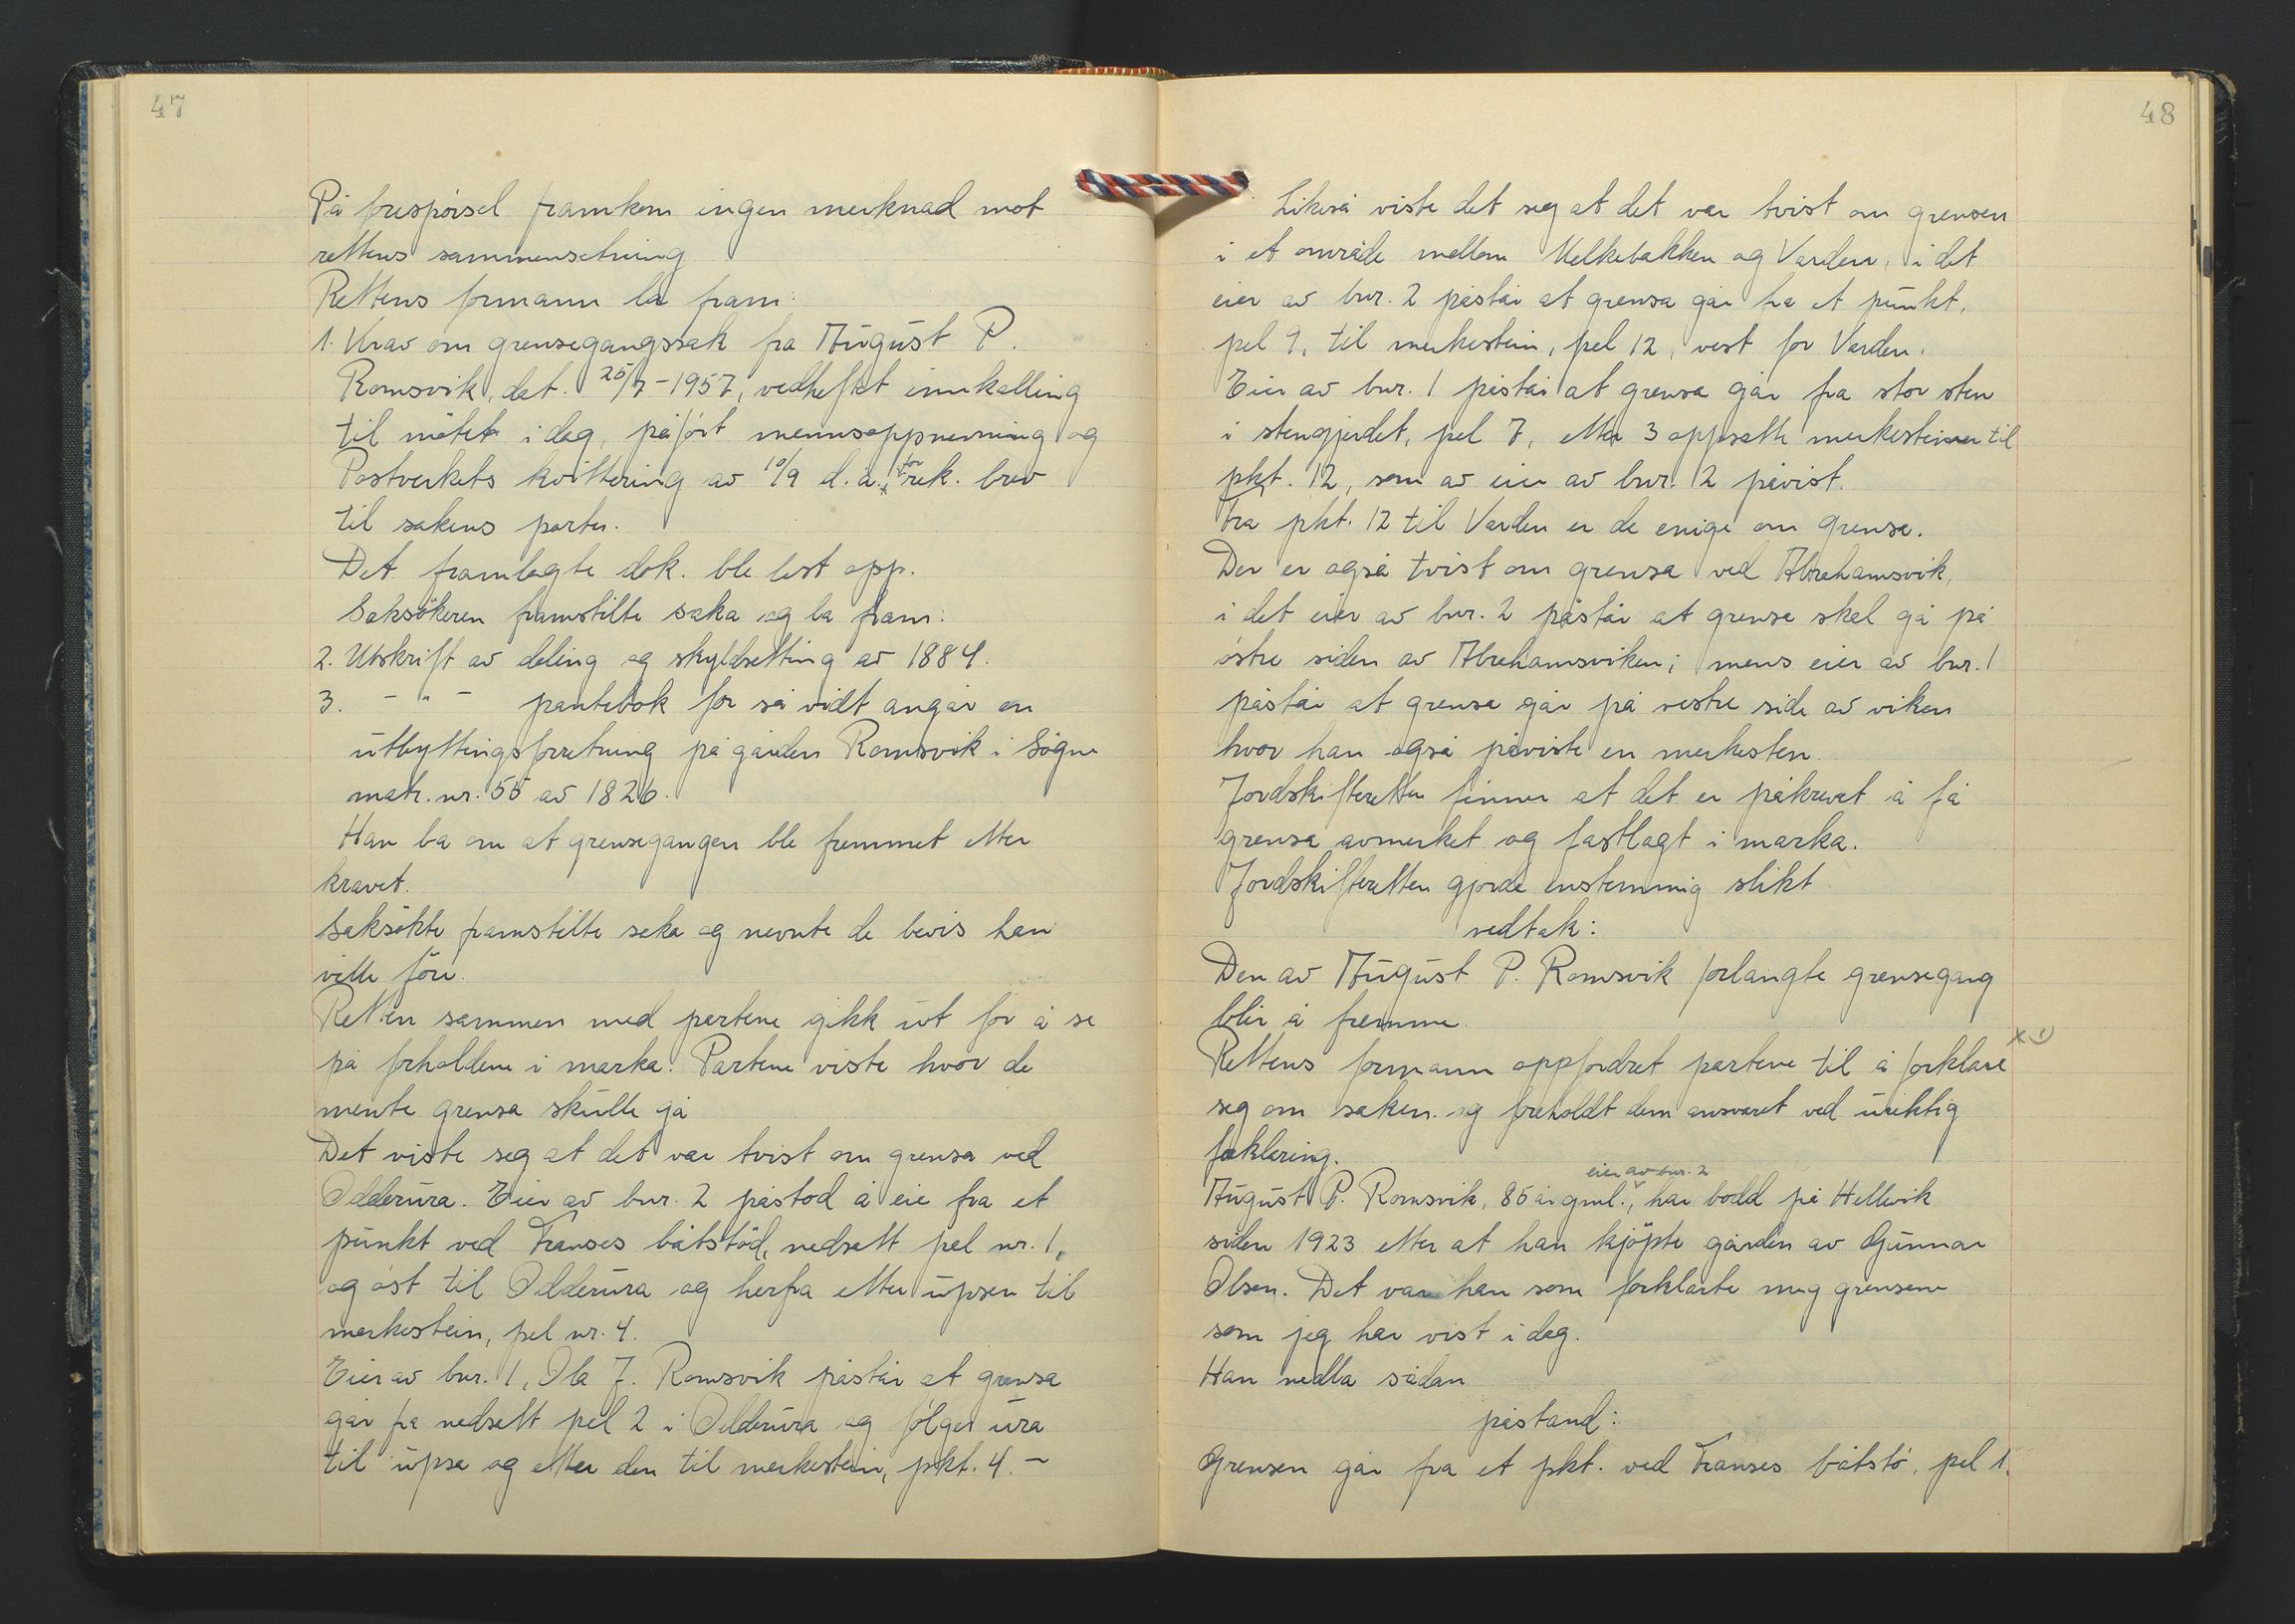 47
På forespørsel framkom ingen merknad mot
rettens sammensetning
Rettens formann la fram:
1. Krav om grensegangssak fra August P.
Romsvik, dat. 25/7-1957, vedheftet innkalling
til møtet i dag, påført mennsoppnevning og
Postverkets kvittering av 10/9 d.å. for rek. brev
til sakens parter.
Det framlagte dok. ble lest opp.
Saksökeren framstilte saka og la fram:
2. Utskrift av deling og skyldsetting av 1884.
3. - " - pantebok for så vidt angår en
utbyttingsforretning på gården Romsvik i Søgne
matr. nr. 55 av 1826.
Han ba om at grensegangen ble fremmet etter
kravet.
Saksökte framstilte saka og nevnte de bevis han
ville före.
Retten sammen med partene gikk ut for å se
på forholdene i marka. Partene viste hvor de
mente grensa skulle gå
Det viste seg at det var tvist om grensa ved
Odderura. Eier av bnr. 2 påstod å eie fra et
punkt ved Franses båtstöd, nedsatt pel nr. 1,
og øst til Odderura og herfra etter upsen til
merkestein, pel nr. 4.
Eier av bnr. 1, Ola J. Romsvik påstår at grensa
går fra nedsatt pel 2 i Odderura og følger ura
til upsa og etter den til merkestein, pkt. 4. -
48
Likeså viste det seg at det var tvist om grensen
i et område mellom Melkebakken og Varden, i det
eier av bnr. 2 påstår at grensa går fra et punkt,
pel 9, til merkestein, pel 12, vest for Varden.
Eier av bnr. 1 påstår at grensa går fra stor sten
i stengjerdet, pel 7, etter 3 oppsatte merkesteiner til
pkt. 12, som av eier av bnr. 2 påvist.
Fra pkt. 12 til Varden er de enige om grensa.
Der er også tvist om grensa ved Abrahamsvik,
i det eier av bnr. 2 påstår at grensa skal gå på
østre siden av Abrahamsviken; mens eier av bnr. 1
påstår at grensa går på vestre side av viken
hvor han også påviste en merkesten.
Jordskifteretten finner at det er påkrevet å få
grensa avmerket og fastlagt i marka.
Jordskifteretten gjorde enstemmig slikt
vedtak:
Den av August P. Romsvik forlangte grensegang
blir å fremme
Rettens formann oppfordret partene til å forklare x 1)
seg om saken og foreholdt dem ansvaret ved uriktig
forklaring.
eier av bnr. 2
August P. Romsvik, 85 år gml., har bodd på Hellevik
siden 1923 etter at han kjöpte gården av Gunnar
Olsen. Det var han som forklarte meg grensene
som jeg har vist i dag.
Han nedla sådan
påstand:
Grensen går fra et pkt. ved Franses båtstö, pel 1,